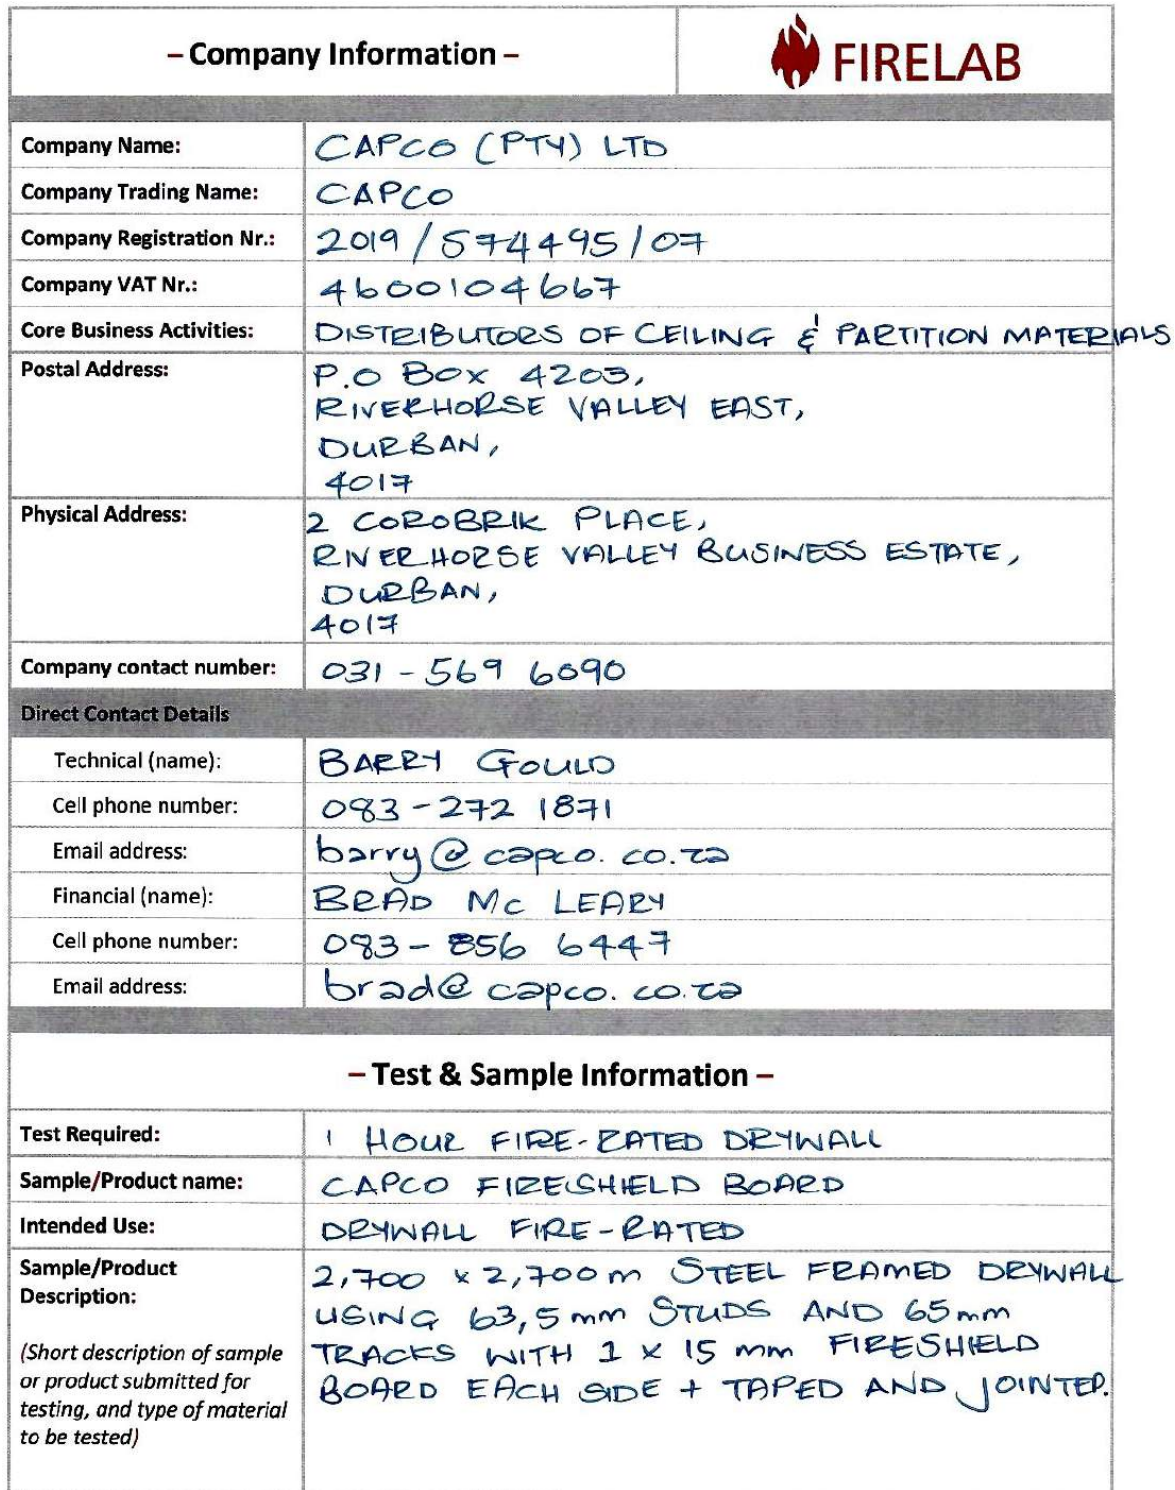 – Company Information –
FIRELAB
Company Name: CAPCO (PTY) LTD
Company Trading Name: CAPCO
Company Registration Nr.: 2019/574495/07
Company VAT Nr.: 4600104667
Core Business Activities: DISTRIBUTORS OF CEILING & PARTITION MATERIALS
Postal Address: P.O BOX 4203,
RIVERHORSE VALLEY EAST,
DURBAN,
4017
Physical Address: 2 COROBRIK PLACE,
RIVERHORSE VALLEY BUSINESS ESTATE,
DURBAN,
4017
Company contact number: 031-569 6090
Direct Contact Details
Technical (name): BARRY GOULD
Cell phone number: 083-272 1871
Email address: barry@capco.co.za
Financial (name): BRAD Mc LEARY
Cell phone number: 083-856 6447
Email address: brad@capco.co.za
– Test & Sample Information –
Test Required: 1 HOUR FIRE-RATED DRYWALL
Sample/Product name: CAPCO FIRESHIELD BOARD
Intended Use: DRYWALL FIRE-RATED
Sample/Product
Description:
(Short description of sample
or product submitted for
testing, and type of material
to be tested)
2,700 x 2,700m STEEL FRAMED DRYWALL
USING 63,5mm STUDS AND 65mm
TRACKS WITH 1 x 15 mm FIRESHIELD
BOARD EACH SIDE + TAPED AND JOINTED.